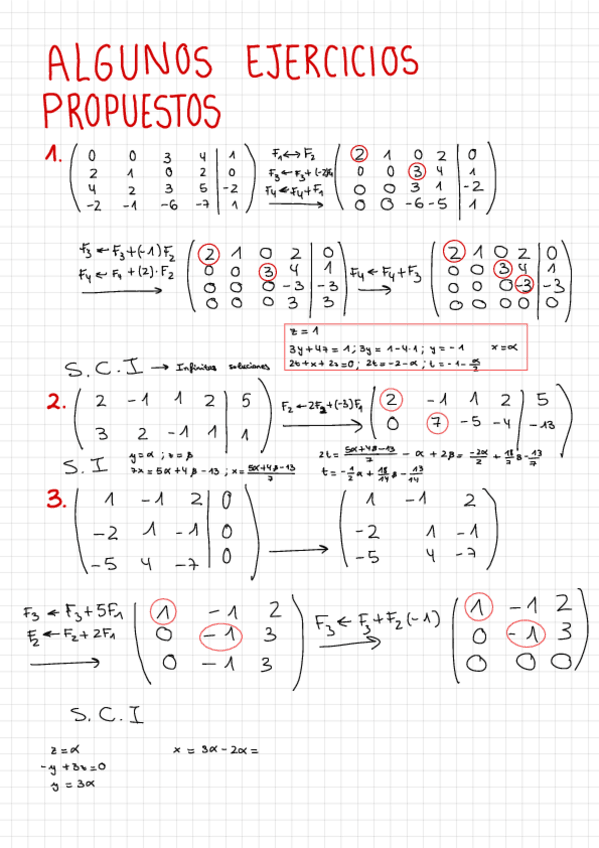 ALGUNOS EJERCICIOS
PROPUESTOS
1.
0 0 3 4 | 1
2 1 0 2 | 0
4 2 3 5 | -2
-2 -1 -6 -7 | 1
F1↔F2
F3←F3+(-2)F1
F4←F4+F1
2 1 0 2 | 0
0 0 3 4 | 1
0 0 3 1 | -2
0 0 -6 -5 | 1
F3←F3+(-1)F2
F4←F4+(2)·F2
2 1 0 2 | 0
0 0 3 4 | 1
0 0 0 -3 | -3
0 0 0 3 | 3
F4←F4+F3
2 1 0 2 | 0
0 0 3 4 | 1
0 0 0 -3 | -3
0 0 0 0 | 0
z = 1
3y + 4z = 1 ; 3y = 1-4·1 ; y = -1 x = α
2t + x + 2z = 0 ; 2t = -2-α ; t = -1-α/2
S.C.I → Infinitas soluciones
2.
2 -1 1 2 | 5
3 2 -1 1 | 1
F2←2F2+(-3)F1
2 -1 1 2 | 5
0 7 -5 -4 | -13
S.I
y=α ; z=β
7x = 5α+4β-13 ; x = 5α+4β-13/7
2t = 5α+4β-13/7 - α + 2β = -2α/2 + 18/7 β - 13/7
t = -1/2 α + 18/14 β - 13/14
3.
1 -1 2 | 0
-2 1 -1 | 0
-5 4 -7 | 0
1 -1 2
-2 1 -1
-5 4 -7
F3←F3+5F1
F2←F2+2F1
1 -1 2
0 -1 3
0 -1 3
F3←F3+F2(-1)
1 -1 2
0 -1 3
0 0 0
S.C.I
z = α x = 3α-2α =
-y + 3z = 0
y = 3α